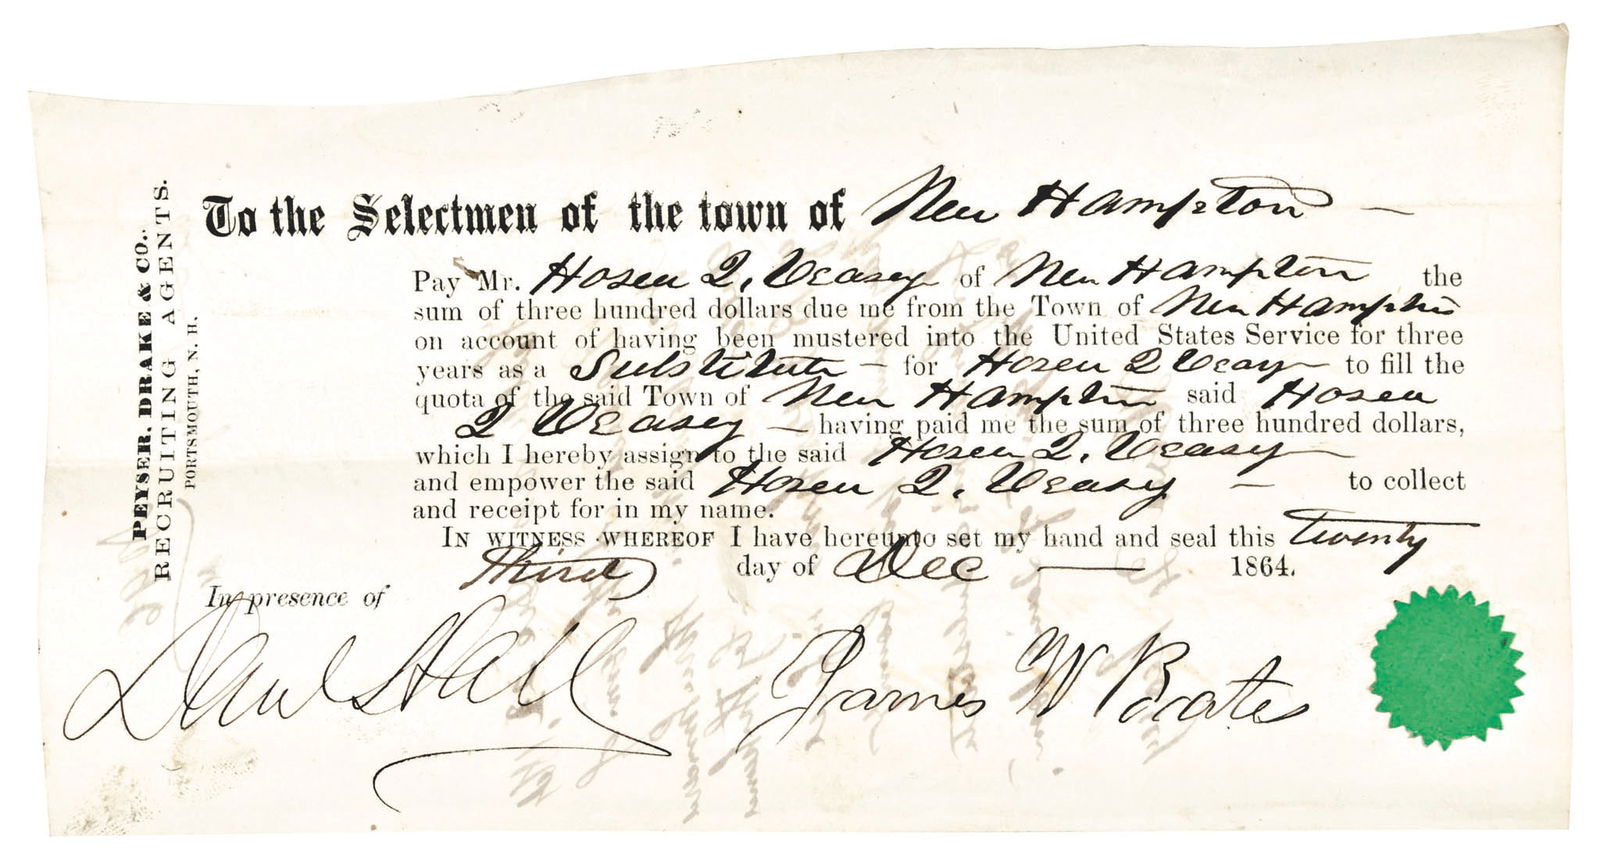 PEYSER, DRAKE & CO.,
RECRUITING AGENTS.
PORTSMOUTH, N. H.
To the Selectmen of the town of New Hampton —
Pay Mr. Hosea Q. Veasey of New Hampton the
sum of three hundred dollars due me from the Town of New Hampton
on account of having been mustered into the United States Service for three
years as a Substitute — for Hosea Q Veasy to fill the
quota of the said Town of New Hampton said Hosea
Q Veasey — having paid me the sum of three hundred dollars,
which I hereby assign to the said Hosea Q. Veasey —
and empower the said Hosea Q. Veasey — to collect
and receipt for in my name.
IN WITNESS WHEREOF I have hereunto set my hand and seal this twenty
third day of Dec — 1864.
In presence of
Danl Hall James W Bates